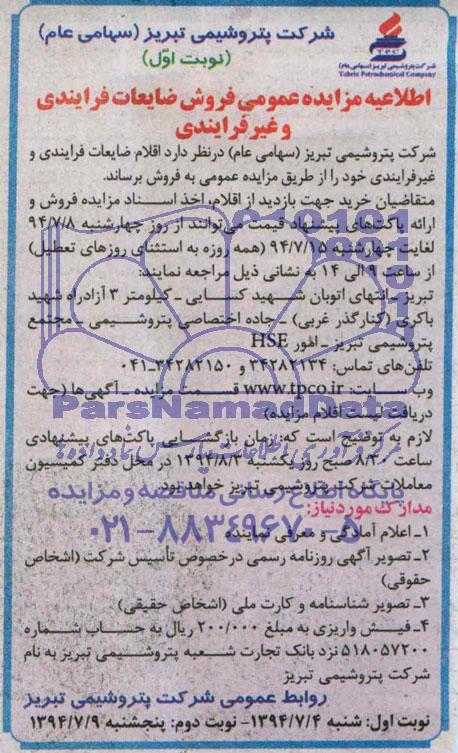 شرکت پتروشیمی تبریز (سهامی عام)
(نوبت اوّل)
TPC
شرکت پتروشیمی تبریز (سهامی عام)
Tabriz Petrochemical Company
اطلاعیه مزایده عمومی فروش ضایعات فرایندی
و غیرفرایندی
شرکت پتروشیمی تبریز (سهامی عام) درنظر دارد اقلام ضایعات فرایندی و
غیرفرایندی خود را از طریق مزایده عمومی به فروش برساند.
متقاضیان خرید جهت بازدید از اقلام، اخذ اسناد مزایده فروش و
ارائه پاکت‌های پیشنهاد قیمت می‌توانند از روز چهارشنبه ۹۴/۷/۸
لغایت چهارشنبه ۹۴/۷/۱۵ (همه روزه به استثنای روزهای تعطیل)
از ساعت ۹ الی ۱۴ به نشانی ذیل مراجعه نمایند:
تبریز ـ انتهای اتوبان شهید کسایی ـ کیلومتر ۳ آزادراه شهید
باکری (کنارگذر غربی) ـ جاده اختصاصی پتروشیمی ـ مجتمع
پتروشیمی تبریز ـ امور HSE
تلفن‌های تماس: ۳۴۲۸۲۱۳۴ و ۳۴۲۸۲۱۵۰-۰۴۱
وب سایت: www.tpco.ir قسمت مزایده ـ آگهی‌ها (جهت
دریافت لیست اقلام مزایده)
ParsNamadData
لازم به توضیح است که: زمان بازگشایی پاکت‌های پیشنهادی
ساعت ۸/۳۰ صبح روز یکشنبه ۱۳۹۴/۸/۳ در محل دفتر کمیسیون
معاملات شرکت پتروشیمی تبریز خواهد بود.
پایگاه اطلاع رسانی مناقصه و مزایده
مدارک مورد نیاز:
۰۲۱-۸۸۳۴۹۶۷۰-۵
۱ـ اعلام آمادگی و معرفی نماینده
۲ـ تصویر آگهی روزنامه رسمی درخصوص تأسیس شرکت (اشخاص
حقوقی)
۳ـ تصویر شناسنامه و کارت ملی (اشخاص حقیقی)
۴ـ فیش واریزی به مبلغ ۲۰۰/۰۰۰ ریال به حساب شماره
۵۱۸۰۵۷۲۰۰ نزد بانک تجارت شعبه پتروشیمی تبریز به نام
شرکت پتروشیمی تبریز
روابط عمومی شرکت پتروشیمی تبریز
نوبت اول: شنبه ۱۳۹۴/۷/۴- نوبت دوم: پنجشنبه ۱۳۹۴/۷/۹